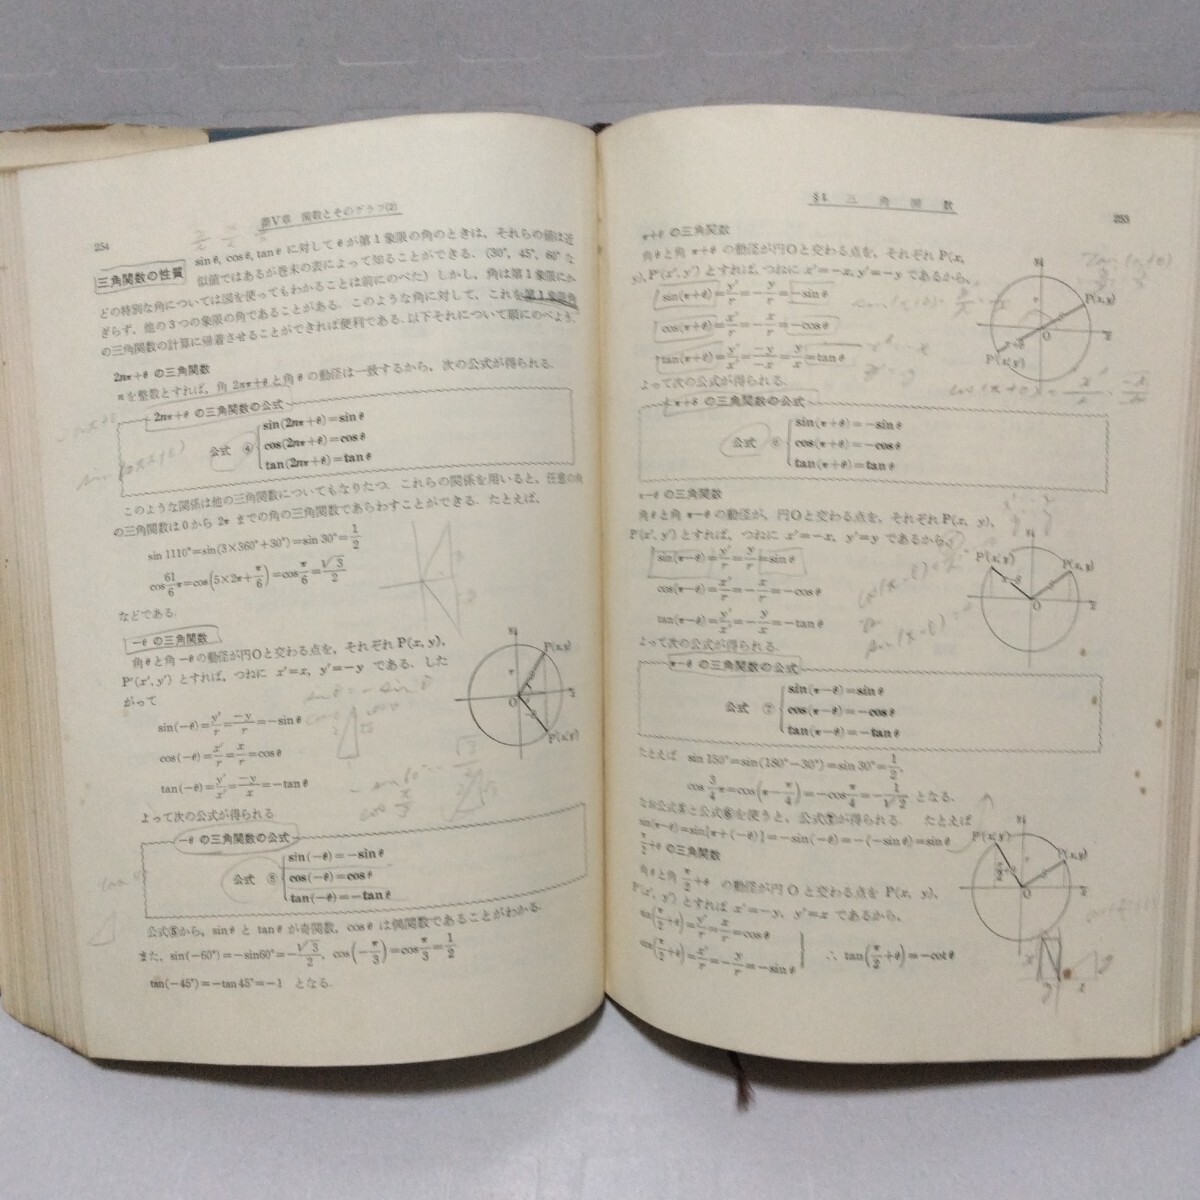 第Ⅴ章 関数とそのグラフ(2)
254
三角関数の性質
sinθ, cosθ, tanθ に対して θ が第1象限の角のときは, それらの値は近
似値ではあるが巻末の表によって知ることができる. (30°, 45°, 60° な
どの特別な角については図を使ってもわかることは前にのべた) しかし, 角は第1象限にか
ぎらず, 他の3つの象限の角であることがある. このような角に対して, これを第1象限角
の三角関数の計算に帰着させることができれば便利である. 以下それについて順にのべよう.
2nπ+θ の三角関数
n を整数とすれば, 角 2nπ+θ と角 θ の動径は一致するから, 次の公式が得られる.
2nπ+θ の三角関数の公式
公式 ④
sin(2nπ+θ)=sinθ
cos(2nπ+θ)=cosθ
tan(2nπ+θ)=tanθ
このような関係は他の三角関数についてもなりたつ. これらの関係を用いると, 任意の角
の三角関数は0から 2π までの角の三角関数であらわすことができる. たとえば,
sin 1110°=sin(3×360°+30°)=sin 30°=1/2
cos 61/6 π=cos(5×2π+π/6)=cos π/6=√3/2
などである.
-θ の三角関数
角 θ と角 -θ の動径が円Oと交わる点を, それぞれ P(x, y),
P'(x', y') とすれば, つねに x'=x, y'=-y である. した
がって
sin(-θ)=y'/r=-y/r=-sinθ
cos(-θ)=x'/r=x/r=cosθ
tan(-θ)=y'/x'=-y/x=-tanθ
よって次の公式が得られる
-θ の三角関数の公式
公式 ⑤
sin(-θ)=-sinθ
cos(-θ)=cosθ
tan(-θ)=-tanθ
公式⑤から, sinθ と tanθ が奇関数, cosθ は偶関数であることがわかる.
また, sin(-60°)=-sin60°=-√3/2, cos(-π/3)=cos π/3=1/2
tan(-45°)=-tan 45°=-1 となる.
§4. 三角関数
255
π+θ の三角関数
角 θ と角 π+θ の動径が円Oと交わる点を, それぞれ P(x,
y), P'(x', y') とすれば, つねに x'=-x, y'=-y であるから,
sin(π+θ)=y'/r=-y/r=-sinθ
cos(π+θ)=x'/r=-x/r=-cosθ
tan(π+θ)=y'/x'=-y/-x=y/x=tanθ
よって次の公式が得られる.
π+θ の三角関数の公式
公式 ⑥
sin(π+θ)=-sinθ
cos(π+θ)=-cosθ
tan(π+θ)=tanθ
π-θ の三角関数
角 θ と角 π-θ の動径が, 円Oと交わる点を, それぞれ P(x, y),
P'(x', y') とすれば, つねに x'=-x, y'=y であるから,
sin(π-θ)=y'/r=y/r=sinθ
cos(π-θ)=x'/r=-x/r=-cosθ
tan(π-θ)=y'/x'=-y/x=-tanθ
よって次の公式が得られる.
π-θ の三角関数の公式
公式 ⑦
sin(π-θ)=sinθ
cos(π-θ)=-cosθ
tan(π-θ)=-tanθ
たとえば sin 150°=sin(180°-30°)=sin 30°=1/2,
cos 3/4 π=cos(π-π/4)=-cos π/4=-1/√2 となる.
なお公式⑤と公式⑥を使うと, 公式⑦が得られる. たとえば
sin(π-θ)=sin{π+(-θ)}=-sin(-θ)=-(-sinθ)=sinθ
π/2+θ の三角関数
角 θ と角 π/2+θ の動径が円 O と交わる点を P(x, y),
P'(x', y') とすれば x'=-y, y'=x であるから,
sin(π/2+θ)=y'/r=x/r=cosθ
cos(π/2+θ)=x'/r=-y/r=-sinθ
∴ tan(π/2+θ)=-cotθ